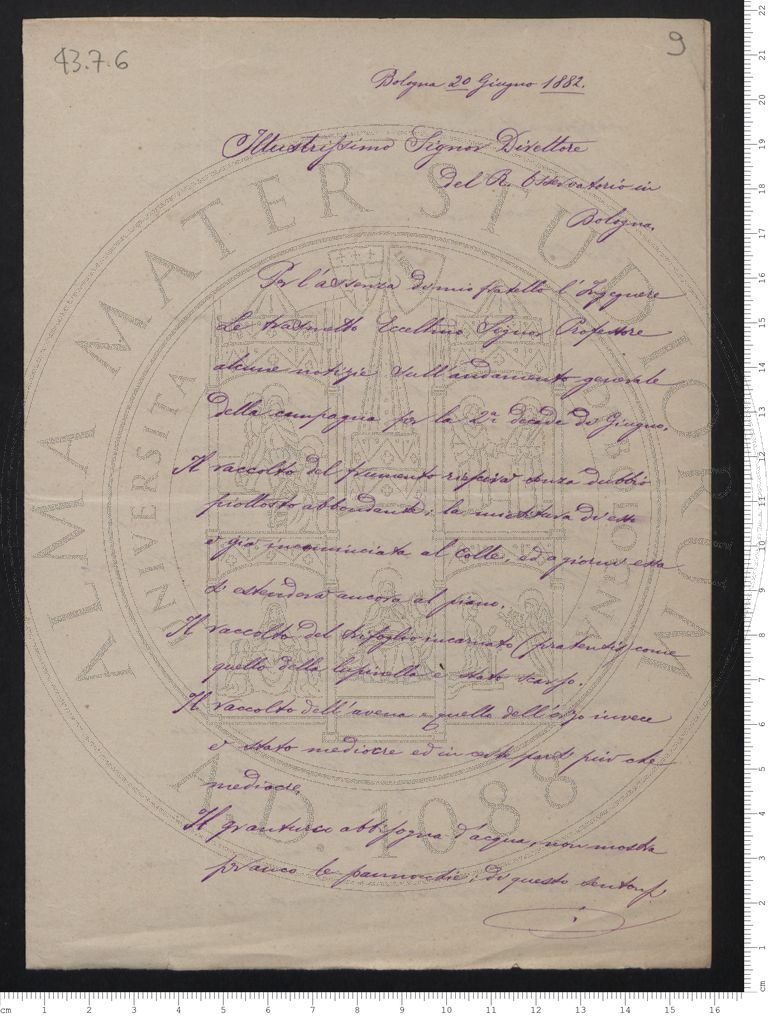 43.7.6
9
Bologna 20 Giugno 1882.
Illustrissimo Signor Direttore
del R. Osservatorio in
Bologna.
Per l'assenza di mio fratello l'Ingegnere
Le trasmetto Eccellmo Signor Professore
alcune notizie sull'andamento generale
della campagna per la 2a decade di Giugno.
Il raccolto del frumento riescirà senza dubbio
piuttosto abbondante; la mietitura di esso
è già incominciata al Colle, ed a giorni essa
si estenderà ancora al piano.
Il raccolto del trifoglio incarnato (pratensis) come
quello della lupinella è stato scarso.
Il raccolto dell'avena e quello dell'orzo invece
è stato mediocre ed in certe parti più che
mediocre.
Il granturco abbisogna d'acqua, non mostra
le pannocchie; di questo
ALMA MATER STUDIORUM
A.D. 1088